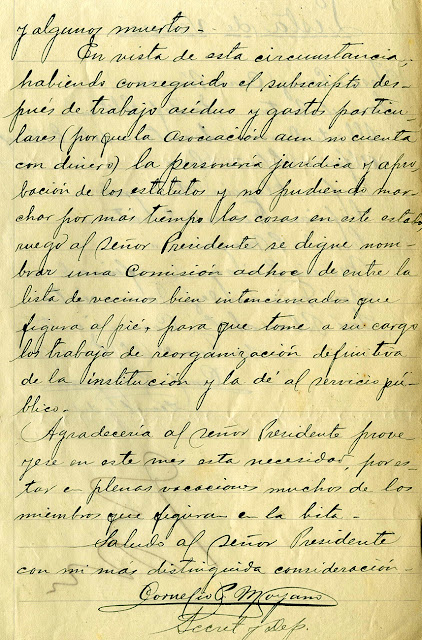 y algunos muertos.-
En vista de esta circunstancia,
habiendo conseguido el subscripto des-
pués de trabajo asíduo y gastos particu-
lares (porque la asociación aun no cuenta
con dinero) la personería jurídica y apro-
bación de los estatutos y no pudiendo mar-
char por más tiempo las cosas en este estado
ruego al señor Presidente se digne nom-
brar una Comisión adhoc de entre la
lista de vecinos bien intencionados que
figura al pié, para que tome a su cargo
los trabajos de reorganización definitiva
de la institución y la dé al servicio pú-
blico.-
Agradecería al señor Presidente prove-
yese en este mes esta necesidad, por es-
tar en plenas vacaciones muchos de los
miembros que figuran en la lista.-
Saludo al señor Presidente
con mi más distinguida consideración.-
Cornelio P. Moyano
Secret y Dep.